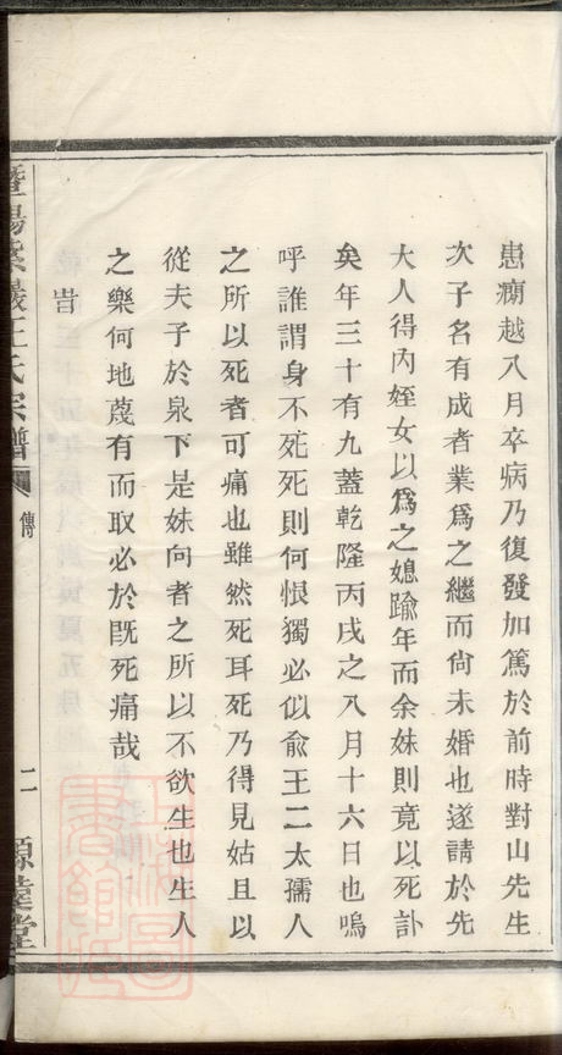 患痢越八月卒病乃復發加篤於前時對山先生
次子名有成者業爲之繼而尙未婚也遂請於先
大人得內姪女以爲之媳踰年而余妹則竟以死訃
矣年三十有九蓋乾隆丙戌之八月十六日也嗚
呼誰謂身不死死則何恨獨必似兪王二太孺人
之所以死者可痛也雖然死耳死乃得見姑且以
從夫子於泉下是妹向者之所以不欲生也生人
之樂何地蔑有而取必於旣死痛哉
旹
暨陽紫巖王氏宗譜 傳 二 源遠堂
上海圖書館藏